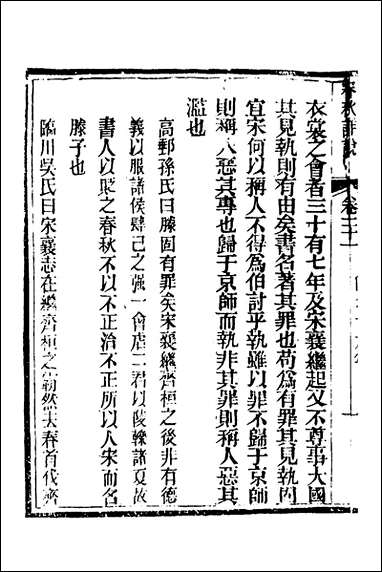 春秋
卷二十
衣裳之會者三十有七年及宋襄繼起又不尊事大國
其見執則有由矣書名著其罪也苟爲有罪其見執固
宜宋何以稱人不得爲伯討乎執雖以罪不歸于京師
則稱人惡其專也歸于京師而執非其罪則稱人惡其
濫也
高郵孫氏曰滕固有罪矣宋襄繼齊桓之後非有德
義以服諸侯肆己之強一會虐二君以陵轢諸夏故
書人以貶之春秋不以不正治不正所以人宋而名
滕子也
臨川吳氏曰宋襄志在繼齊桓之霸然夫春首伐齊